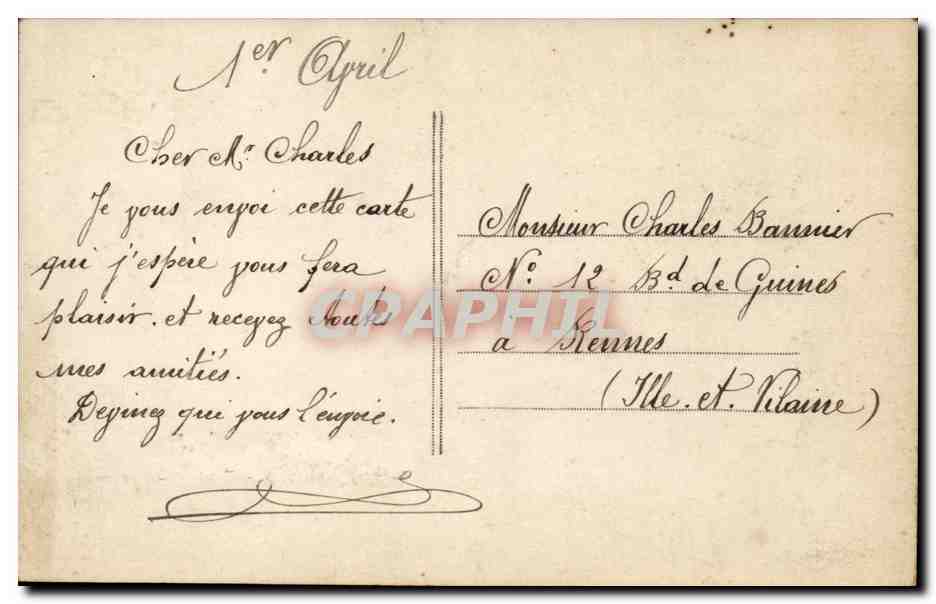 1er April
Cher Mr Charles
Je vous envoi cette carte
qui j'espère vous fera
plaisir. et recevez toutes
mes amitiés.
Devinez qui vous l'envoie.
Monsieur Charles Bannier
No 12 Bd de Guines
à Rennes
(Ille. et. Vilaine)
CPAPHIL